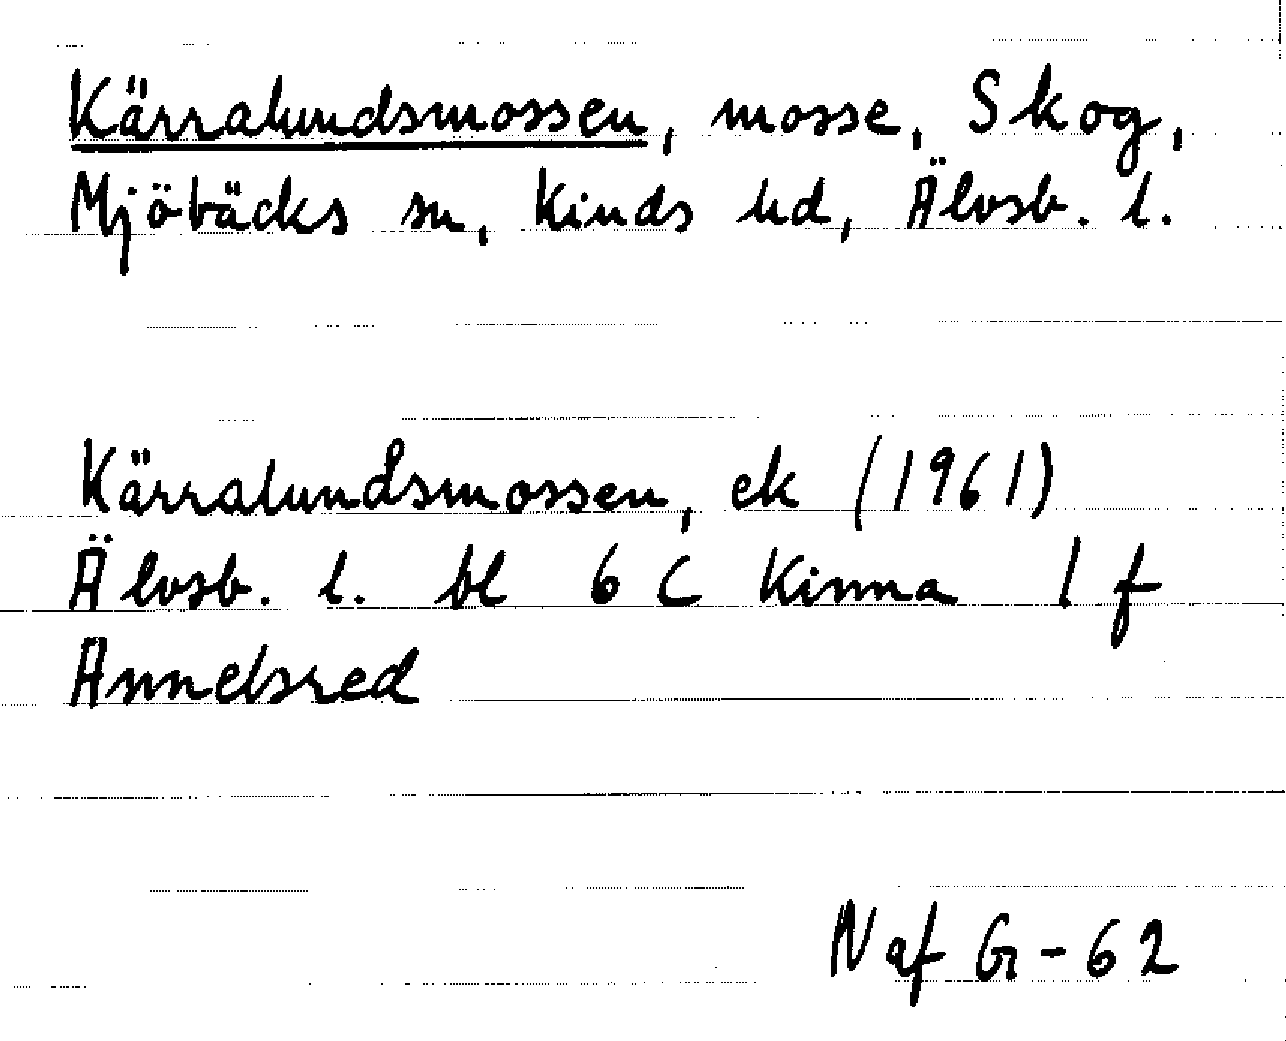 Kärralundsmossen, mosse, Skog,
Mjöbäcks sn, Kinds hd, Älvsb. l.
Kärralundsmossen, ek (1961)
Älvsb. l. bl 6 C Kinna 1 f
Annelsred
Naf G-62